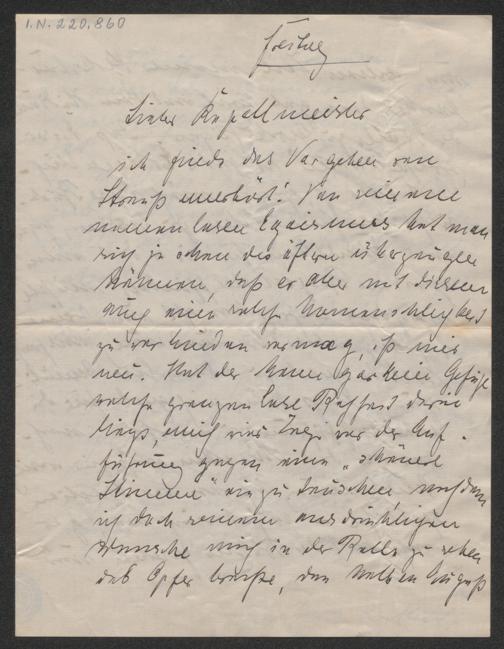 I.N. 220,860
Freitag
Lieber Kapellmeister
ich finde das Vorgehen von
Strauß unerhört! Von seinem
namenlosen Egoismus hat man
sich ja schon des öftern überzeugen
können, daß er aber mit diesem
auch eine solche Unmenschlichkeit
zu verbinden vermag, ist mir
neu. Hat der Mann gar kein Gefühl
welche grenzenlose Rohheit darin
liegt, mich vier Tage vor der Auf-
führung gegen eine „schönere
Stimme" einzutauschen, nachdem
ich doch seinem ausdrücklichen
Wunsche mich in der Rolle zu sehen
das Opfer brachte, den halben August